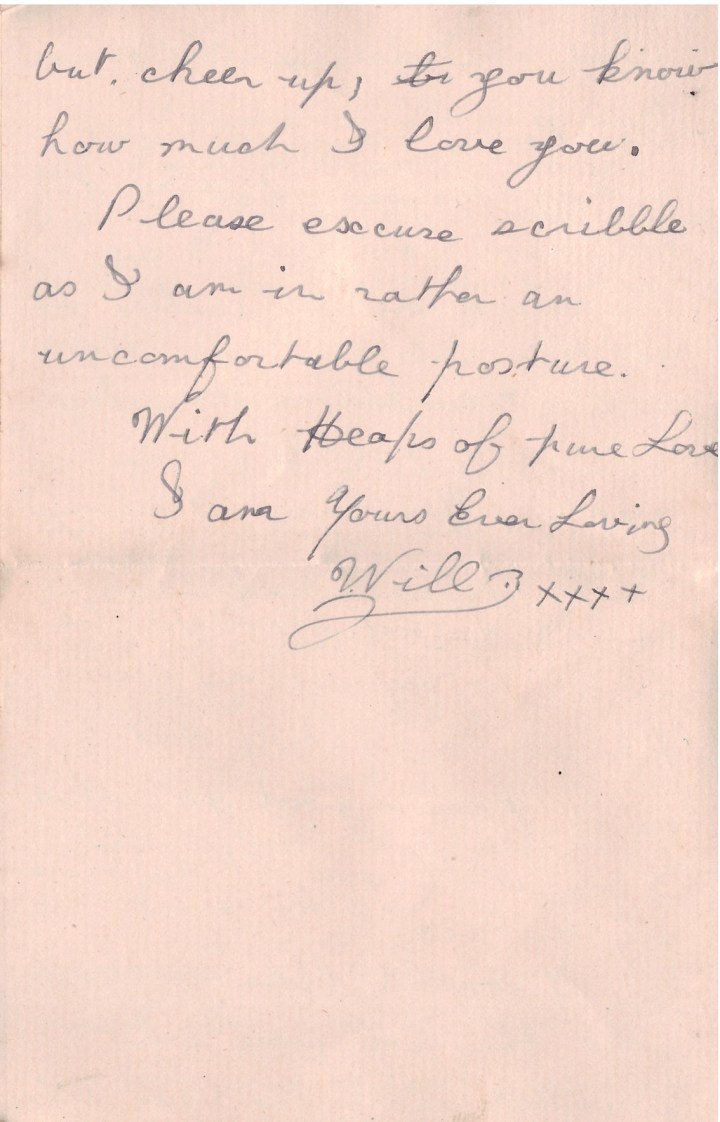 but. cheer up, you know
how much I love you.
Please excuse scribble
as I am in rather an
uncomfortable posture.
With Heaps of pure Love
I am Yours Ever Loving
Will xxxx